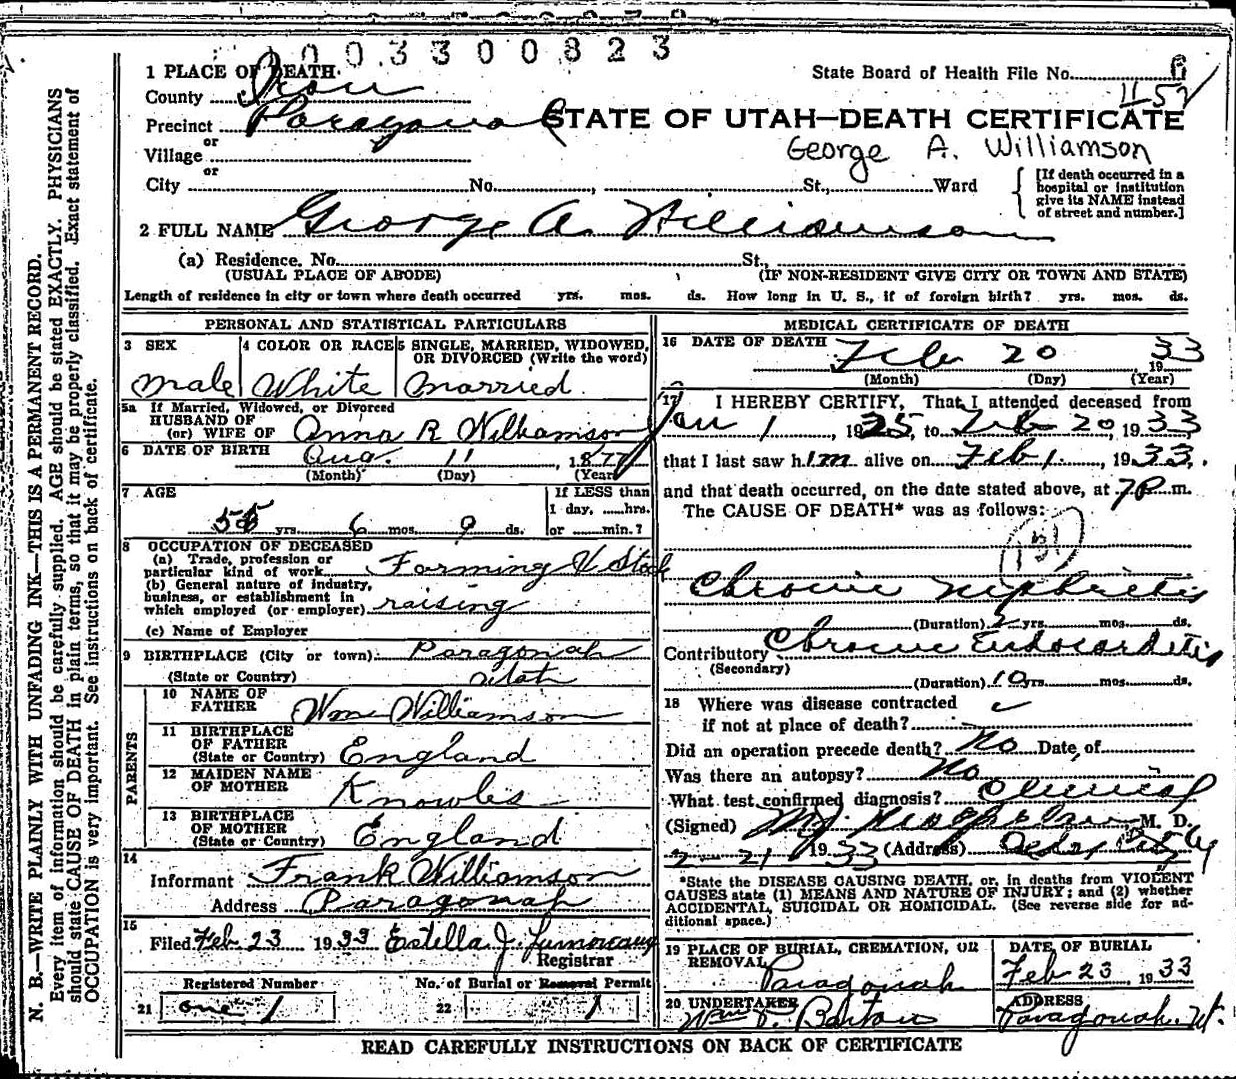 0 0 3 3 0 0 8 2 3
1 PLACE OF DEATH
State Board of Health File No. 6
County Iron
Precinct Paragonah
STATE OF UTAH—DEATH CERTIFICATE
or
Village
George A. Williamson
or
City No. , St., Ward
[If death occurred in a hospital or institution give its NAME instead of street and number.]
2 FULL NAME George A. Williamson
(a) Residence. No. St.,
(USUAL PLACE OF ABODE) (IF NON-RESIDENT GIVE CITY OR TOWN AND STATE)
Length of residence in city or town where death occurred yrs. mos. ds. How long in U. S., if of foreign birth? yrs. mos. ds.
N. B.—WRITE PLAINLY WITH UNFADING INK—THIS IS A PERMANENT RECORD.
Every item of information should be carefully supplied. AGE should be stated EXACTLY. PHYSICIANS
should state CAUSE OF DEATH in plain terms, so that it may be properly classified. Exact statement of
OCCUPATION is very important. See instructions on back of certificate.
PERSONAL AND STATISTICAL PARTICULARS
3 SEX
male
4 COLOR OR RACE
White
5 SINGLE, MARRIED, WIDOWED,
OR DIVORCED (Write the word)
married
5a If Married, Widowed, or Divorced
HUSBAND OF
(or) WIFE OF Anna R Williamson
6 DATE OF BIRTH Aug. 11, 1877
(Month) (Day) (Year)
7 AGE
55 yrs. 6 mos. 9 ds.
If LESS than
1 day, hrs.
or min.?
8 OCCUPATION OF DECEASED
(a) Trade, profession or
particular kind of work Farming & Stock
(b) General nature of industry,
business, or establishment in
which employed (or employer) raising
(c) Name of Employer
9 BIRTHPLACE (City or town) Paragonah
(State or Country) Utah
PARENTS
10 NAME OF
FATHER Wm Williamson
11 BIRTHPLACE
OF FATHER
(State or Country) England
12 MAIDEN NAME
OF MOTHER Knowles
13 BIRTHPLACE
OF MOTHER
(State or Country) England
14
Informant Frank Williamson
Address Paragonah
15
Filed Feb 23 1933 Estella J.
Registrar
Registered Number
21 one 1
No. of Burial or Removal Permit
22 1
MEDICAL CERTIFICATE OF DEATH
16 DATE OF DEATH Feb 20 1933
(Month) (Day) (Year)
17 I HEREBY CERTIFY, That I attended deceased from
Jan 1, 1925, to Feb 20, 1933
that I last saw him alive on Feb 1, 1933,
and that death occurred, on the date stated above, at 7 P m.
The CAUSE OF DEATH* was as follows:
131
Chronic Nephritis
(Duration) yrs. mos. ds.
Contributory Chronic Endocarditis
(Secondary)
(Duration) 10 yrs. mos. ds.
18 Where was disease contracted
if not at place of death?
Did an operation precede death? No Date, of
Was there an autopsy? No
What test confirmed diagnosis? Clinical
(Signed) M. D.
2-21 1933 (Address) Cedar City
*State the DISEASE CAUSING DEATH, or, in deaths from VIOLENT
CAUSES state (1) MEANS AND NATURE OF INJURY; and (2) whether
ACCIDENTAL, SUICIDAL OR HOMICIDAL. (See reverse side for ad-
ditional space.)
19 PLACE OF BURIAL, CREMATION, OR
REMOVAL
Paragonah
DATE OF BURIAL
Feb 23, 1933
20 UNDERTAKER
Wm T. Barton
ADDRESS
Paragonah. Ut.
READ CAREFULLY INSTRUCTIONS ON BACK OF CERTIFICATE